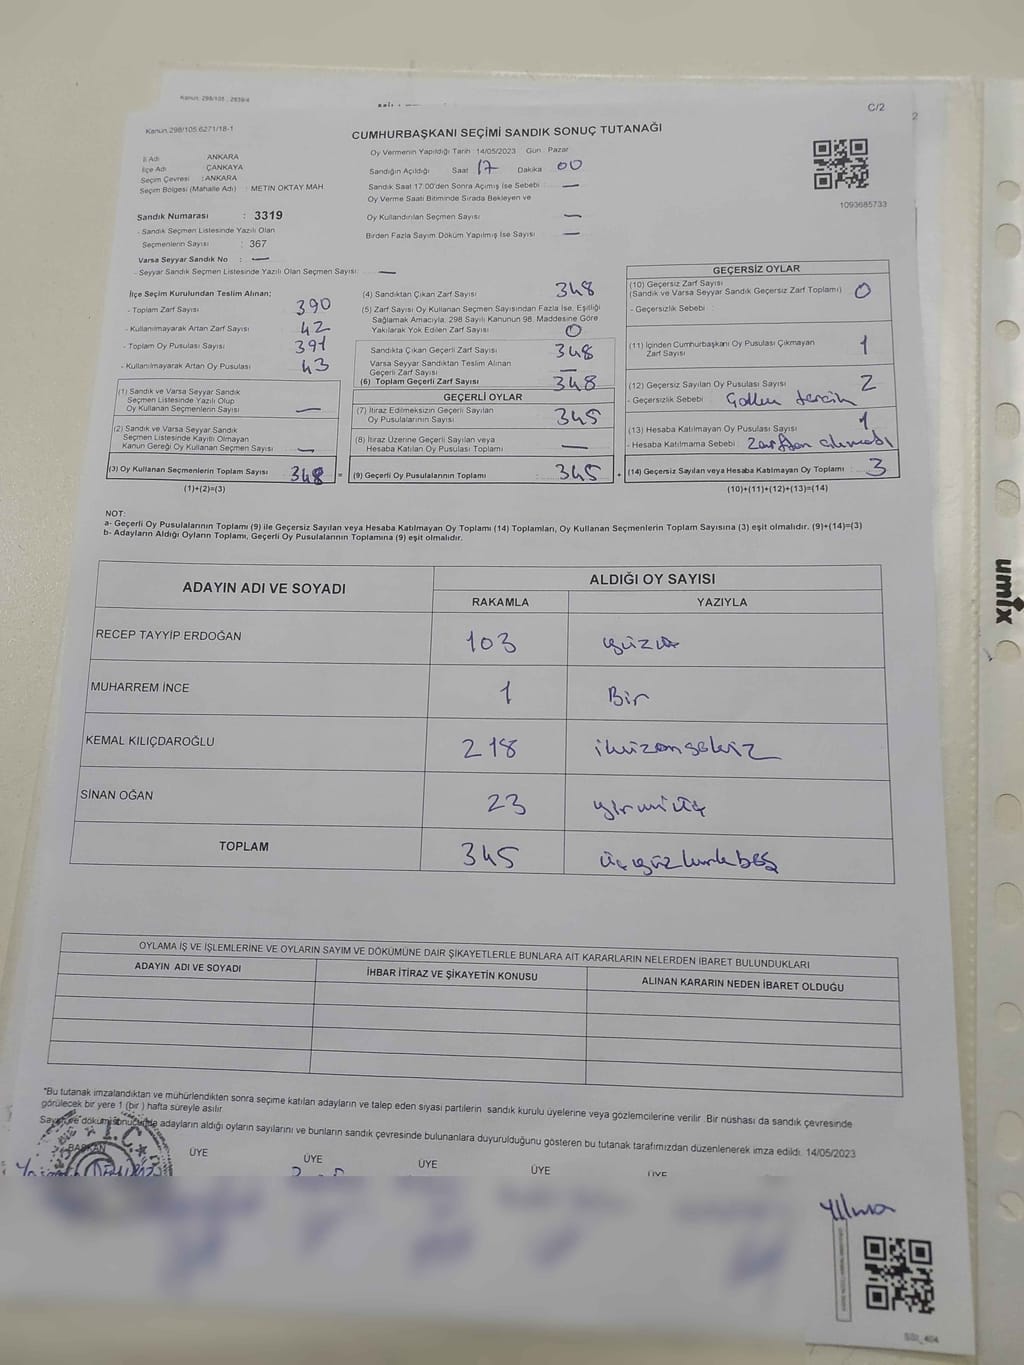 Kanun: 298/105 , 2839/4
C/2
2
Kanun 298/105.6271/18-1
CUMHURBAŞKANI SEÇİMİ SANDIK SONUÇ TUTANAĞI
İl Adı : ANKARA
İlçe Adı : ÇANKAYA
Seçim Çevresi : ANKARA
Seçim Bölgesi (Mahalle Adı) : METİN OKTAY MAH
Oy Vermenin Yapıldığı Tarih : 14/05/2023 Gün : Pazar
Sandığın Açıldığı : Saat 17 Dakika 00
Sandık Saat 17:00'den Sonra Açımış İse Sebebi : —
Oy Verme Saati Bitiminde Sırada Bekleyen ve
Oy Kullandırılan Seçmen Sayısı —
Birden Fazla Sayım Döküm Yapılmış İse Sayısı —
1093685733
Sandık Numarası : 3319
- Sandık Seçmen Listesinde Yazılı Olan
Seçmenlerin Sayısı : 367
Varsa Seyyar Sandık No : —
- Seyyar Sandık Seçmen Listesinde Yazılı Olan Seçmen Sayısı : —
İlçe Seçim Kurulundan Teslim Alınan;
- Toplam Zarf Sayısı 390
- Kullanılmayarak Artan Zarf Sayısı 42
- Toplam Oy Pusulası Sayısı 391
- Kullanılmayarak Artan Oy Pusulası 43
(1) Sandık ve Varsa Seyyar Sandık
Seçmen Listesinde Yazılı Olup
Oy Kullanan Seçmenlerin Sayısı —
(2) Sandık ve Varsa Seyyar Sandık
Seçmen Listesinde Kayıtlı Olmayan
Kanun Gereği Oy Kullanan Seçmen Sayısı —
(3) Oy Kullanan Seçmenlerin Toplam Sayısı 348 =
(1)+(2)=(3)
(4) Sandıktan Çıkan Zarf Sayısı 348
(5) Zarf Sayısı Oy Kullanan Seçmen Sayısından Fazla İse, Eşitliği
Sağlamak Amacıyla; 298 Sayılı Kanunun 98. Maddesine Göre
Yakılarak Yok Edilen Zarf Sayısı 0
Sandıkta Çıkan Geçerli Zarf Sayısı 348
Varsa Seyyar Sandıktan Teslim Alınan
Geçerli Zarf Sayısı —
(6) Toplam Geçerli Zarf Sayısı 348
GEÇERLİ OYLAR
(7) İtiraz Edilmeksizin Geçerli Sayılan
Oy Pusulalarının Sayısı 345
(8) İtiraz Üzerine Geçerli Sayılan veya
Hesaba Katılan Oy Pusulası Toplamı —
(9) Geçerli Oy Pusulalarının Toplamı : 345 +
GEÇERSİZ OYLAR
(10) Geçersiz Zarf Sayısı
(Sandık ve Varsa Seyyar Sandık Geçersiz Zarf Toplamı) 0
- Geçersizlik Sebebi :
(11) İçinden Cumhurbaşkanı Oy Pusulası Çıkmayan
Zarf Sayısı 1
(12) Geçersiz Sayılan Oy Pusulası Sayısı 2
- Geçersizlik Sebebi : tercih
(13) Hesaba Katılmayan Oy Pusulası Sayısı 1
- Hesaba Katılmama Sebebi : Zarftan çıkmadı
(14) Geçersiz Sayılan veya Hesaba Katılmayan Oy Toplamı : 3
(10)+(11)+(12)+(13)=(14)
NOT:
a- Geçerli Oy Pusulalarının Toplamı (9) ile Geçersiz Sayılan veya Hesaba Katılmayan Oy Toplamı (14) Toplamları, Oy Kullanan Seçmenlerin Toplam Sayısına (3) eşit olmalıdır. (9)+(14)=(3)
b- Adayların Aldığı Oyların Toplamı, Geçerli Oy Pusulalarının Toplamına (9) eşit olmalıdır.
ADAYIN ADI VE SOYADI
ALDIĞI OY SAYISI
RAKAMLA YAZIYLA
RECEP TAYYİP ERDOĞAN 103 yüzüç
MUHARREM İNCE 1 Bir
KEMAL KILIÇDAROĞLU 218 ikiyüzonsekiz
SİNAN OĞAN 23 yirmiüç
TOPLAM 345 üçyüzkırkbeş
OYLAMA İŞ VE İŞLEMLERİNE VE OYLARIN SAYIM VE DÖKÜMÜNE DAİR ŞİKAYETLERLE BUNLARA AİT KARARLARIN NELERDEN İBARET BULUNDUKLARI
ADAYIN ADI VE SOYADI İHBAR İTİRAZ VE ŞİKAYETİN KONUSU ALINAN KARARIN NEDEN İBARET OLDUĞU
*Bu tutanak imzalandıktan ve mühürlendikten sonra seçime katılan adayların ve talep eden siyasi partilerin sandık kurulu üyelerine veya gözlemcilerine verilir. Bir nüshası da sandık çevresinde
görülecek bir yere 1 (bir ) hafta süreyle asılır
adayların aldığı oyların sayılarını ve bunların sandık çevresinde bulunanlara duyurulduğunu gösteren bu tutanak tarafımızdan düzenlenerek imza edildi. 14/05/2023
BAŞKAN ÜYE ÜYE ÜYE ÜYE ÜYE
T.C.
umix